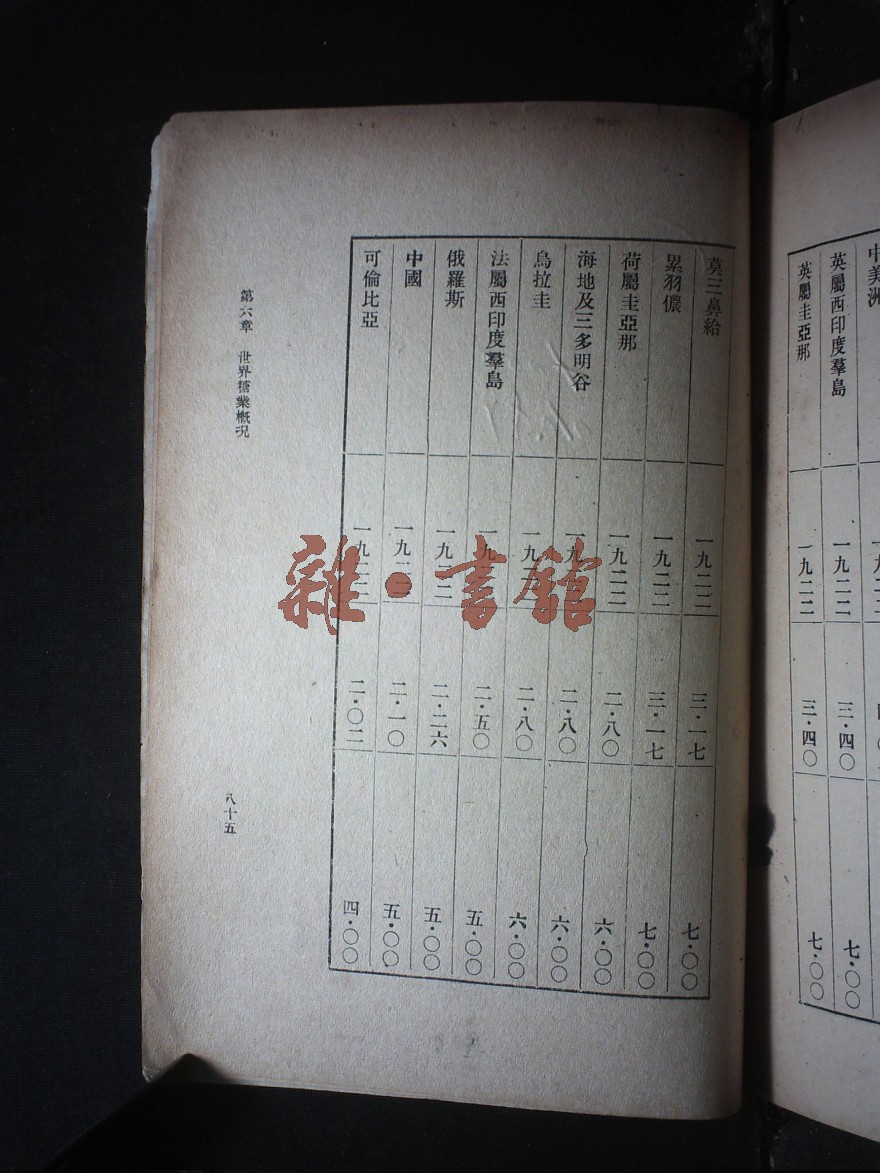 中美洲
英屬西印度羣島 一九二二 三・四〇 七・〇〇
英屬圭亞那 一九二二 三・四〇 七・〇〇
莫三鼻給 一九二二 三・一七 七・〇〇
累羽儂 一九二二 三・一七 七・〇〇
荷屬圭亞那 一九二二 二・八〇 六・〇〇
海地及三多明谷 一九 二・八〇 六・〇〇
烏拉圭 一九 二・八〇 六・〇〇
法屬西印度羣島 一九 二・五〇 五・〇〇
俄羅斯 一九二二 二・二六 五・〇〇
中國 一九二二 二・一〇 五・〇〇
可倫比亞 一九二二 二・〇二 四・〇〇
第六章 世界糖業概況
八十五
雜・書館